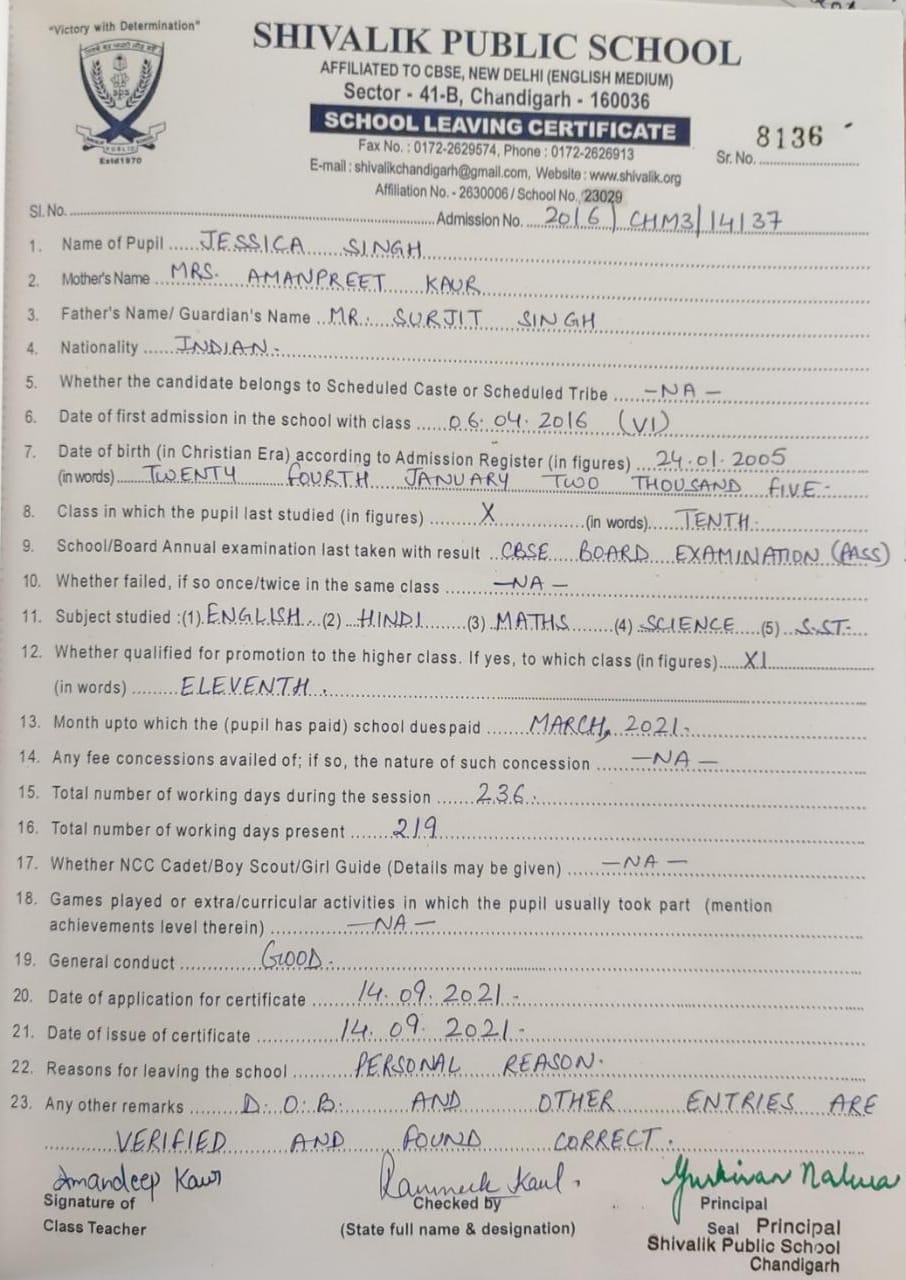 "Victory with Determination"
SHIVALIK PUBLIC SCHOOL
AFFILIATED TO CBSE, NEW DELHI (ENGLISH MEDIUM)
Sector - 41-B, Chandigarh - 160036
SCHOOL LEAVING CERTIFICATE
Estd1970
Fax No. : 0172-2629574, Phone : 0172-2626913
Sr. No. 8136
E-mail : shivalikchandigarh@gmail.com, Website : www.shivalik.org
Affiliation No. - 2630006 / School No. 23029
Sl. No. Admission No. 2016/CHM3/14137
1. Name of Pupil JESSICA SINGH
2. Mother's Name MRS. AMANPREET KAUR
3. Father's Name/ Guardian's Name MR. SURJIT SINGH
4. Nationality INDIAN.
5. Whether the candidate belongs to Scheduled Caste or Scheduled Tribe -NA-
6. Date of first admission in the school with class 06.04.2016 (VI)
7. Date of birth (in Christian Era) according to Admission Register (in figures) 24.01.2005
(in words) TWENTY FOURTH JANUARY TWO THOUSAND FIVE-
8. Class in which the pupil last studied (in figures) X (in words) TENTH.
9. School/Board Annual examination last taken with result CBSE BOARD EXAMINATION (PASS)
10. Whether failed, if so once/twice in the same class -NA-
11. Subject studied :(1) ENGLISH (2) HINDI (3) MATHS (4) SCIENCE (5) S.ST-
12. Whether qualified for promotion to the higher class. If yes, to which class (in figures) XI
(in words) ELEVENTH.
13. Month upto which the (pupil has paid) school duespaid MARCH, 2021-
14. Any fee concessions availed of; if so, the nature of such concession -NA-
15. Total number of working days during the session 236.
16. Total number of working days present 219
17. Whether NCC Cadet/Boy Scout/Girl Guide (Details may be given) -NA-
18. Games played or extra/curricular activities in which the pupil usually took part (mention
achievements level therein) -NA-
19. General conduct GOOD.
20. Date of application for certificate 14.09.2021-
21. Date of issue of certificate 14.09.2021-
22. Reasons for leaving the school PERSONAL REASON.
23. Any other remarks D.O.B. AND OTHER ENTRIES ARE
VERIFIED AND FOUND CORRECT.
Amandeep Kaur
Signature of
Class Teacher
Checked by
(State full name & designation)
Principal
Seal Principal
Shivalik Public School
Chandigarh